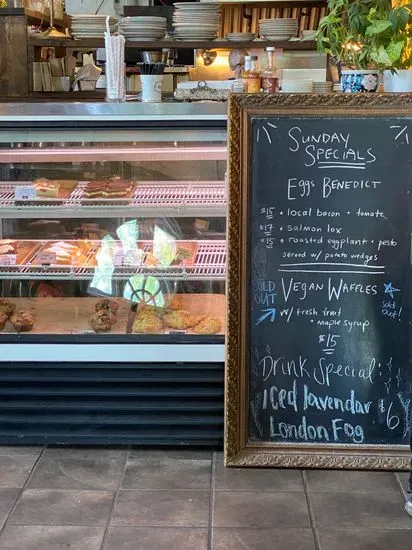 SUNDAY
SPECIALS
EGGS BENEDICT
$15 • local bacon + tomato
$17 • Salmon lox
$15 • roasted eggplant + pesto
Served w/ potato wedges
SOLD OUT
VEGAN WAFFLES
Sold out!
w/ fresh fruit
+ maple syrup
$15
Drink Special:
Iced lavendar $6
London Fog